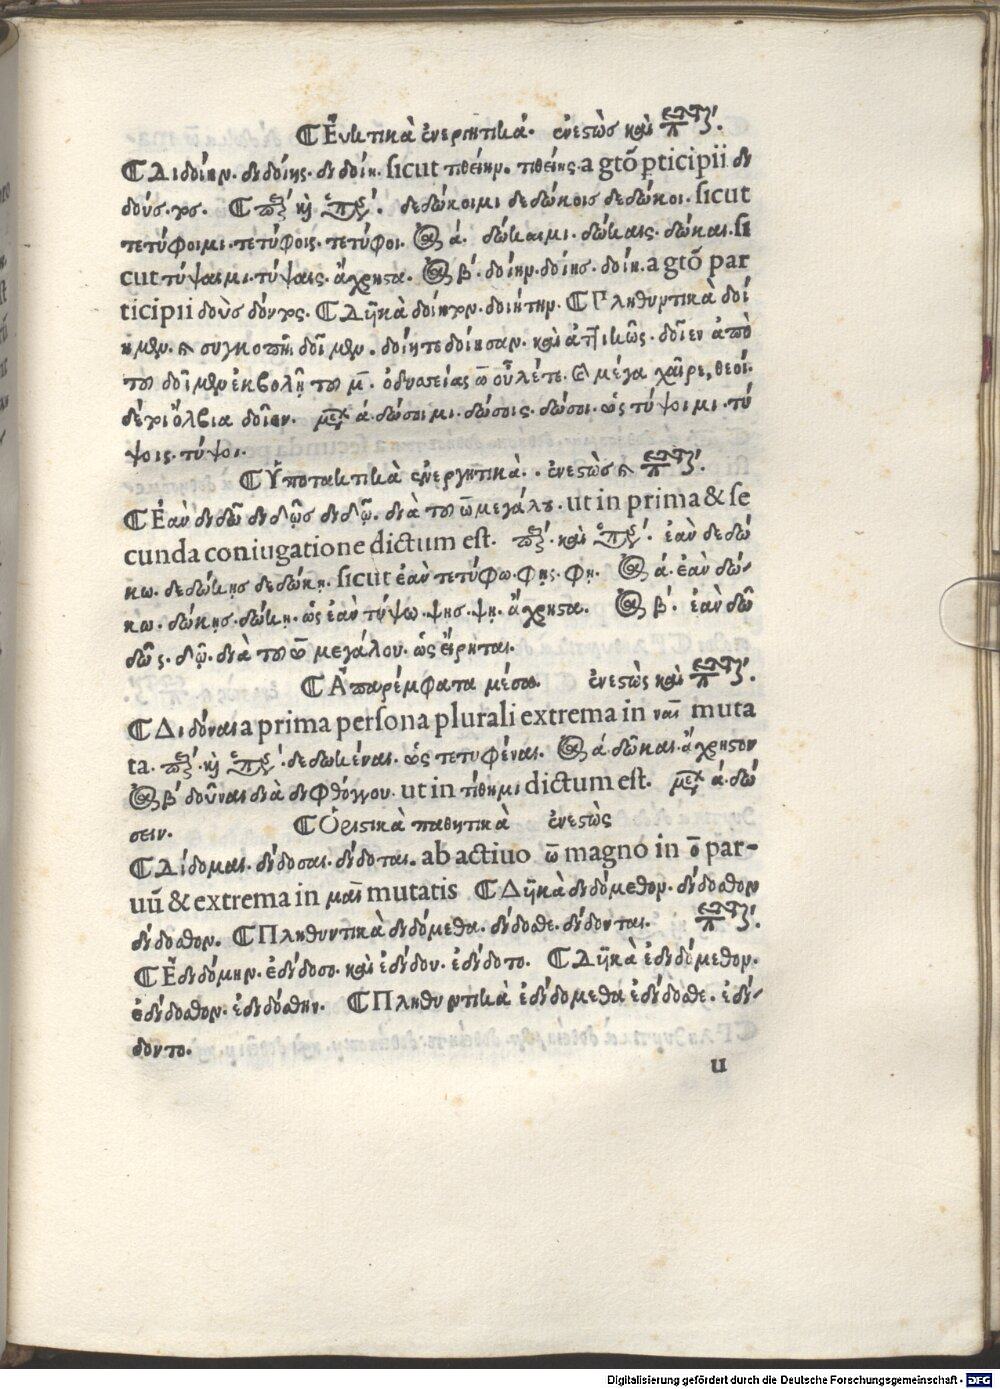 ⅭΕὐκτικὰ ἐνεργητικά. ἐνεστὼς καὶ
ⅭΔιδοίην. διδοίης. διδοίη. sicut τιθείην. τιθείης. a gtō pticipii δι
δούς. Ⅽ καὶ δεδώκοιμι δεδώκοις δεδώκοι. sicut
τετύφοιμι. τετύφοις. τετύφοι. ά. δώκαιμι. δώκαις. δώκαι. si
cut τύψαιμι. τύψαις. ἄχρηστα. β΄. δοίην. δοίης. δοίη. a gtō par
ticipii δοὺς δόντος. ⅭΔυϊκὰ δοίητον. δοιήτην. ⅭΠληθυντικὰ δοί
ημεν. συγκοπὴ δοῖμεν. δοίητε δοίησαν. καὶ ἀττικῶς. δοῖεν ἀπὸ
τοῦ δοῖμεν ἐκβολῇ τοῦ μ̄. ὀδυσσείας ω̄ οὖλέτε. μέγα χαῖρε, θεοὶ.
δέ τι ὄλβια δοῖεν. ά. δώσοιμι. δώσοις. δώσοι. ὡς τύψοιμι. τύ
ψοις. τύψοι.
ⅭὙποτακτικὰ ἐνεργητικὰ. ἐνεστὼς
ⅭἘὰν διδῶ διδῷς διδῷ. διὰ τοῦ ω̄ μεγάλου. ut in prima & se
cunda coniugatione dictum est. καὶ ἐὰν δεδώ
κω. δεδώκῃς δεδώκῃ. sicut ἐὰν τετύφω. φῃς. φῃ. ά. ἐὰν δώ-
κω. δώκῃς. δώκῃ. ὡς ἐὰν τύψω. ψῃς. ψῃ. ἄχρηστα. β΄. ἐὰν δῶ
δῷς. δῷ. διὰ τοῦ ω̄ μεγάλου. ὡς εἴρηται.
ⅭἈπαρέμφατα μέσα. ἐνεστὼς καὶ
ⅭΔιδόναι a prima persona plurali extrema in ναι muta
ta. καὶ δεδωκέναι. ὡς τετυφέναι. ά. δῶκαι. ἄχρηστον
β΄ δοῦναι διὰ διφθόγγου. ut in τίθημι dictum est. ά. δώ
σειν. ⅭὉριστικὰ παθητικὰ ἐνεστὼς
ⅭΔίδομαι. δίδοσαι. δίδοται. ab actiuo ω̄ magno in ο̄ par-
uū & extrema in μαι mutatis ⅭΔυϊκὰ διδόμεθον. δίδοσθον
δίδοσθον. ⅭΠληθυντικὰ διδόμεθα. δίδοσθε. δίδονται.
ⅭἘδιδόμην. ἐδίδοσο. καὶ ἐδίδου. ἐδίδοτο. ⅭΔυϊκὰ ἐδιδόμεθον.
ἐδίδοσθον. ἐδιδόσθην. ⅭΠληθυντικὰ ἐδιδόμεθα ἐδίδοσθε. ἐδί-
δοντο.
u
Digitalisierung gefördert durch die Deutsche Forschungsgemeinschaft - DFG